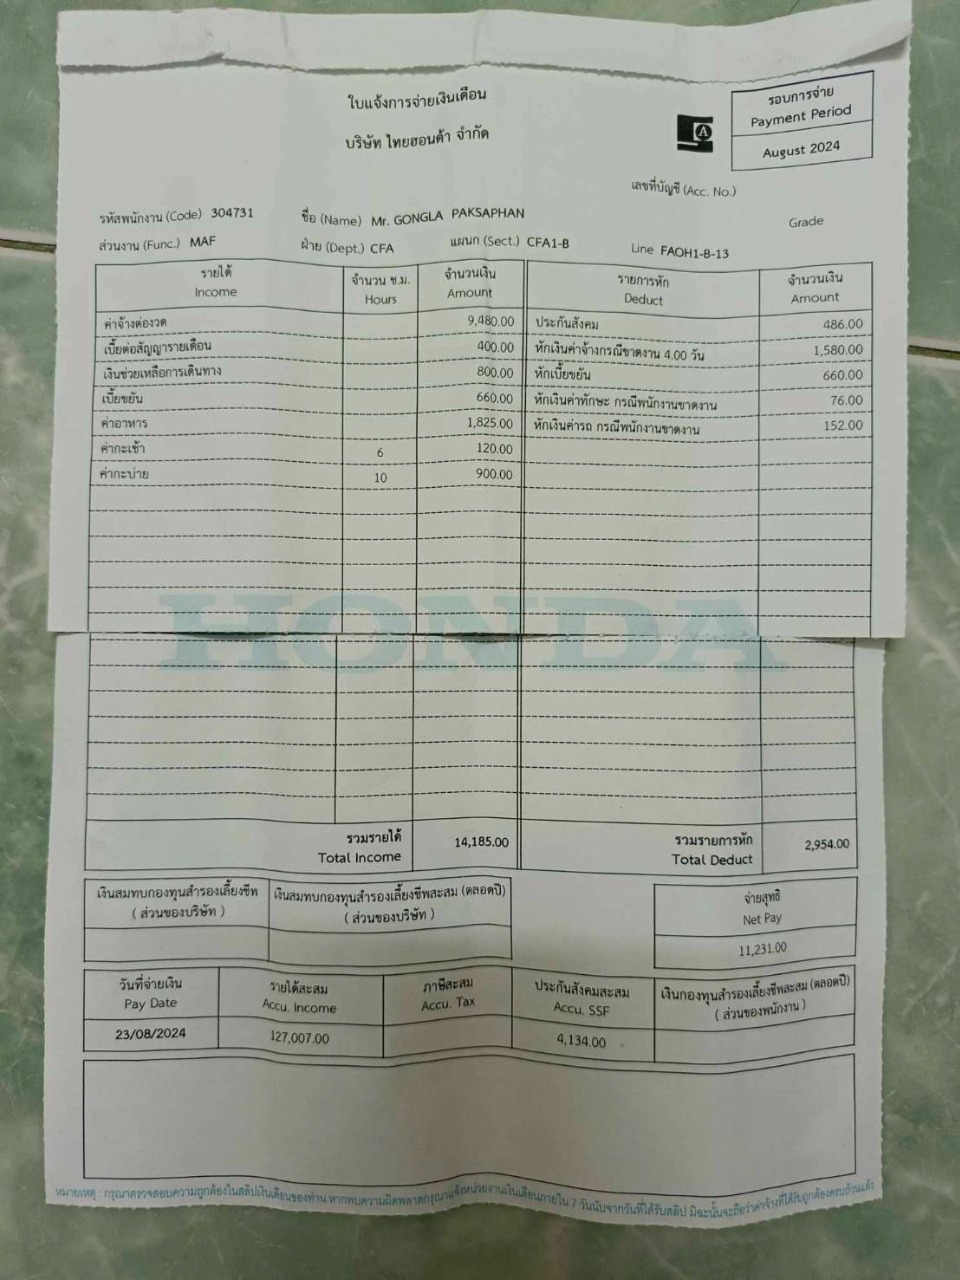 ใบแจ้งการจ่ายเงินเดือน
บริษัท ไทยฮอนด้า จำกัด
รอบการจ่าย
Payment Period
August 2024
เลขที่บัญชี (Acc. No.)
รหัสพนักงาน (Code) 304731 ชื่อ (Name) Mr. GONGLA PAKSAPHAN Grade
ส่วนงาน (Func.) MAF ฝ่าย (Dept.) CFA แผนก (Sect.) CFA1-B Line FAOH1-B-13
รายได้ จำนวน ช.ม. จำนวนเงิน รายการหัก จำนวนเงิน
Income Hours Amount Deduct Amount
ค่าจ้างต่องวด 9,480.00 ประกันสังคม 486.00
เบี้ยต่อสัญญารายเดือน 400.00 หักเงินค่าจ้างกรณีขาดงาน 4.00 วัน 1,580.00
เงินช่วยเหลือการเดินทาง 800.00 หักเบี้ยขยัน 660.00
เบี้ยขยัน 660.00 หักเงินค่าทักษะ กรณีพนักงานขาดงาน 76.00
ค่าอาหาร 1,825.00 หักเงินค่ารถ กรณีพนักงานขาดงาน 152.00
ค่ากะเช้า 6 120.00
ค่ากะบ่าย 10 900.00
HONDA
รวมรายได้ 14,185.00 รวมรายการหัก 2,954.00
Total Income Total Deduct
เงินสมทบกองทุนสำรองเลี้ยงชีพ เงินสมทบกองทุนสำรองเลี้ยงชีพสะสม (ตลอดปี) จ่ายสุทธิ
( ส่วนของบริษัท ) ( ส่วนของบริษัท ) Net Pay
11,231.00
วันที่จ่ายเงิน รายได้สะสม ภาษีสะสม ประกันสังคมสะสม เงินกองทุนสำรองเลี้ยงชีพสะสม (ตลอดปี)
Pay Date Accu. Income Accu. Tax Accu. SSF ( ส่วนของพนักงาน )
23/08/2024 127,007.00 4,134.00
หมายเหตุ : กรุณาตรวจสอบความถูกต้องในสลิปเงินเดือนของท่าน หากพบความผิดพลาดกรุณาแจ้งหน่วยงานเงินเดือนภายใน 7 วันนับจากวันที่ได้รับสลิป มิฉะนั้นจะถือว่าค่าจ้างที่ได้รับถูกต้องครบถ้วนแล้ว